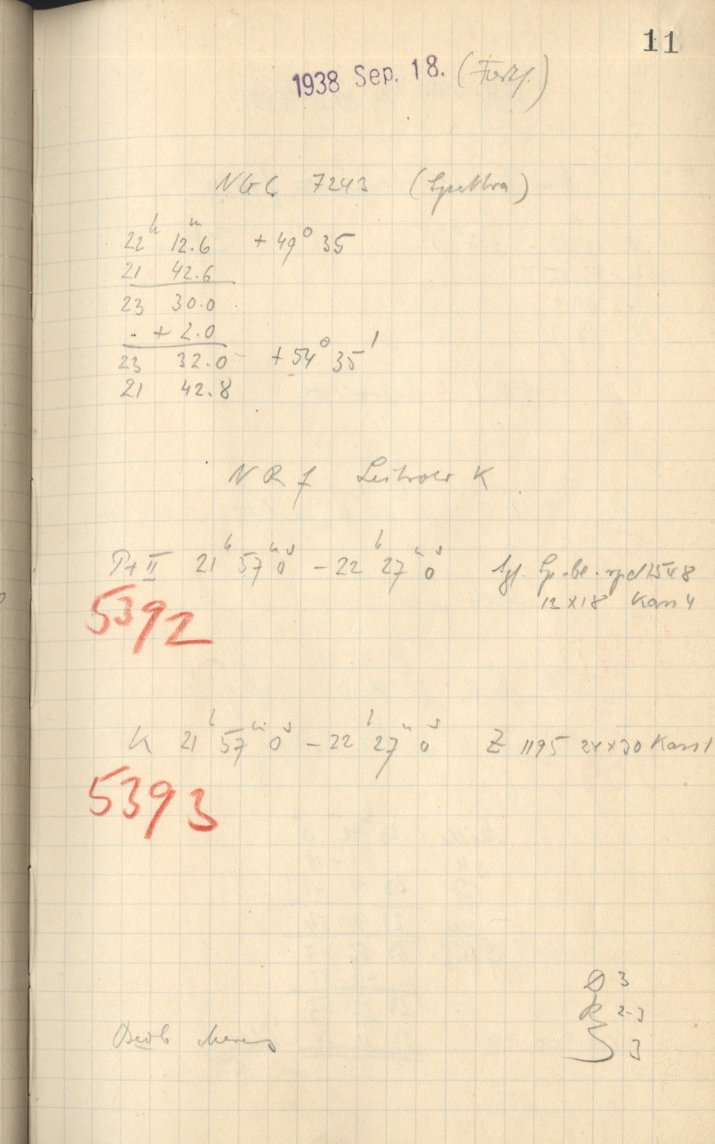 11
1938 Sep. 18. (Forts.)
NGC 7243 (Spektra)
22ʰ 12.6ᵐ + 49° 35
21 42.6
23 30.0
+ 2.0
23 32.0 + 54° 35'
21 42.8
NR 1 K
Pr II 21ʰ 57ᵐ 0ˢ – 22ʰ 27ᵐ 0ˢ 1548
12 x 18 Kass 4
5392
K 21ʰ 57ᵐ 0ˢ – 22ʰ 27ᵐ 0ˢ Z 1195 24 x 30 Kass 1
5393
3
R 2-3
Beob 3